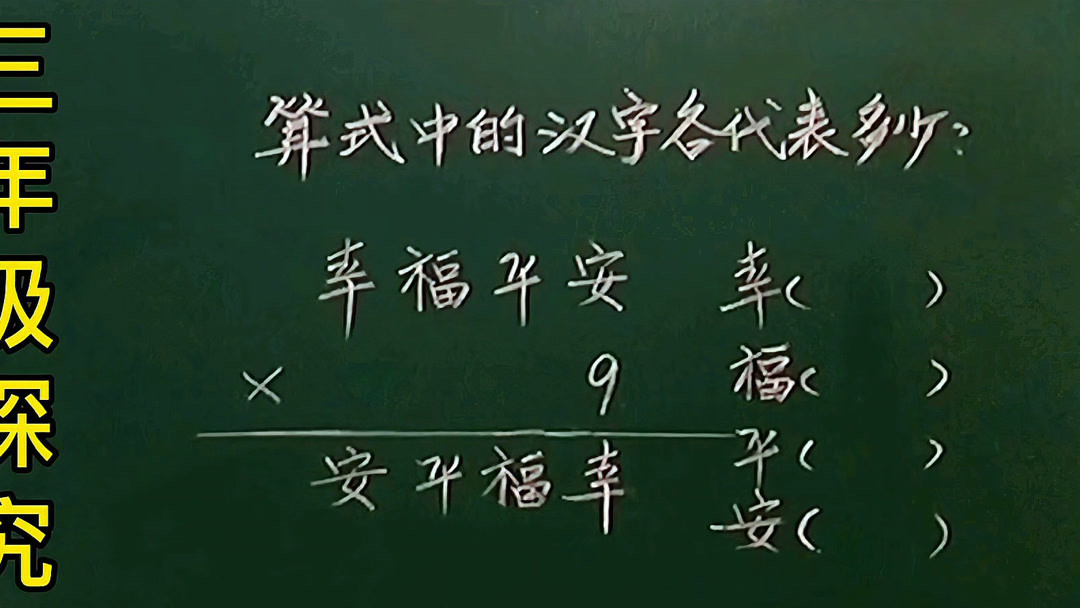 三年级探究
算式中的汉字各代表多少?
幸福平安 幸( )
× 9 福( )
安平福幸 平( )
安( )